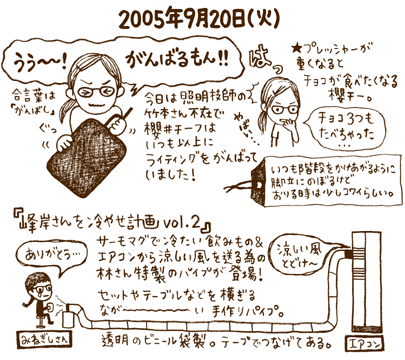 2005年9月20日(火)
うぅ〜〜!
がんばるもん!!
合言葉は
『がんばし』
ぐっ
今日は照明技師の
竹本さん不在で
櫻井チーフは
いつも以上に
ライティングをがんばって
いました!
はっ
やば…
★プレッシャーが
重くなると
チョコが食べたくなる
櫻チー。
チョコ3つも
たべちゃった…
いつも階段をかけあがるように
脚立にのぼるけど
おりる時は少しコワイらしい。
『峰岸さんを冷やせ計画 vol.2』
ありがとう…
みねぎしさん
サーモマグで冷たい飲みもの&
エアコンから涼しい風を送る為の
林さん特製のパイプが登場!
セットやテーブルなどを横ぎる
なが〜〜〜い 手作りパイプ。
涼しい風
とどけ〜
エアコン
透明のビニール袋製。テープでつなげてある。